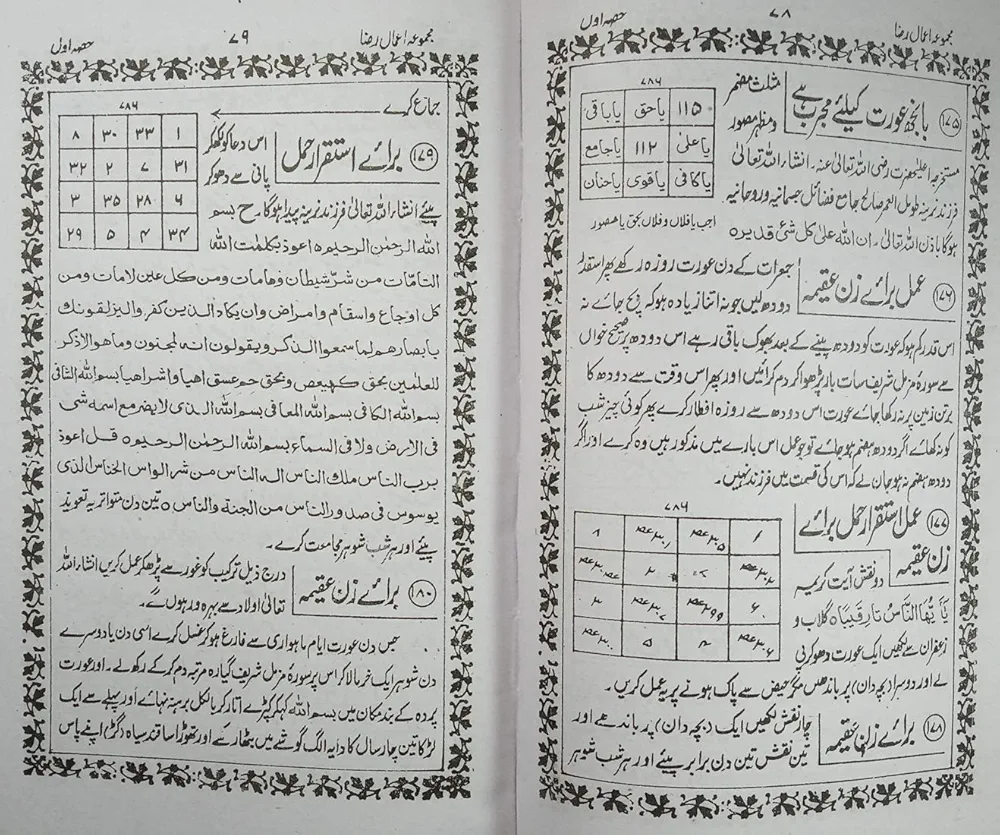 ۷۸
مجموعہ اعمال رضا
حصہ اول
(۱۷۵) بانجھ عورت کیلئے مجرب ہے
مثلث مضمر
و مظہر مصور
۷۸۶
۱۱۵ یا حق یا باقی
یا علی ۱۱۲ یا جامع
یا کافی یا قوی یا حنان
اجب یا فلان و فلان بحق یا مصور
مستخرجہ اعلیٰحضرت رضی اللہ تعالیٰ عنہ۔ انشاء اللہ تعالیٰ
فرزند نرینہ طویل العمر صالح جامع فضائل جسمانیہ و روحانیہ
ہوگا باذن اللہ تعالیٰ۔ ان اللہ علیٰ کل شئ قدیرہ
(۱۷۶) عمل برائے زن عقیمہ
جمعرات کے دن عورت روزہ رکھے پھر اسقدر
دودھ لیں جو نہ اتنا زیادہ ہو کہ بچ جائے نہ
اس قدر کم ہو کہ عورت کو دودھ پینے کے بعد بھوک باقی رہے اس دودھ پر صحیح خواں
سے سورۂ مزمل شریف سات بار پڑھوا کر دم کرائیں اور پھر اس وقت سے دودھ کا
برتن زمین پر نہ رکھا جائے عورت اس دودھ سے روزہ افطار کرے پھر کوئی چیز شب
کو نہ کھائے اگر دودھ ہضم ہو جائے تو جو عمل اس بارے میں مذکور ہیں وہ کرے اور اگر
دودھ ہضم نہ ہو جان لے کہ اس کی قسمت میں فرزند نہیں۔
(۱۷۷) عمل استقرار حمل برائے
زن عقیمہ
۷۸۶
دو نقش آیت کریمہ
یٰٓاَیُّهَا النَّاسُ تا رقیبًا ہ گلاب و
زعفران سے لکھیں ایک عورت دھو کر پی
لے اور دوسرا (بچہ دان) پر باندھیں مگر حیض سے پاک ہونے پر یہ عمل کریں۔
(۱۷۸) برائے زن عقیمہ
چار نقش لکھیں ایک (بچہ دان) پر باندھے اور
تین نقش تین دن برابر پیئے اور ہر شب شوہر
۷۹
مجموعہ اعمال رضا
حصہ اول
جماع کرے
(۱۷۹) برائے استقرار حمل
اس دعا کو لکھ کر
پانی سے دھو کر
۷۸۶
۱ ۳۳ ۳۰ ۸
۳۱ ۷ ۲ ۳۲
۶ ۲۸ ۳۵ ۳
۳۴ ۴ ۵ ۲۹
پیئے انشاء اللہ تعالیٰ فرزند نرینہ پیدا ہوگا۔ ح بسم
اللہ الرحمٰن الرحیمہ اعوذ بکلمٰت اللہ
التامّات من شرّ شیطان وھامات ومن کل عین لامات ومن
کل اوجاع واسقام وامراض وان یکاد الذین کفروا لیزلقونک
بابصارھم لما سمعوا الذکر ویقولون انہ لمجنون وماھو الا ذکر
للعٰلمین بحق کہیعص وبحق حم عسق اھیا واشراھیا بسم اللہ الشافی
بسم اللہ الکافی بسم اللہ المعافی بسم اللہ الذی لا یضر مع اسمہ شی
فی الارض ولا فی السماء بسم اللہ الرحمٰن الرحیم ہ قل اعوذ
برب الناس ملک الناس الہ الناس من شر الوسواس الخناس الذی
یوسوس فی صدور الناس من الجنۃ والناس ہ تین دن متواتر یہ تعویذ
پیئے اور ہر شب شوہر مجامعت کرے۔
(۱۸۰) برائے زن عقیمہ
درج ذیل ترکیب کو غور سے پڑھ کر عمل کریں انشاء اللہ
تعالیٰ اولاد سے بہرہ ور ہوں گے۔
جس دن عورت ایام ماہواری سے فارغ ہو کر غسل کرے اسی دن یا دوسرے
دن شوہر ایک خرما لا کر اس پر سورۂ مزمل شریف گیارہ مرتبہ دم کر کے رکھ لے۔ اور عورت
پردہ کے بند مکان میں بسم اللہ کہہ کر کپڑے اتار کر بالکل برہنہ نہائے اور پہلے سے ایک
لڑکا تین چار سال کا دایہ الگ گوشے میں بٹھا رکھے اور تھوڑا سا قند سیاہ (گڑ) اپنے پاس